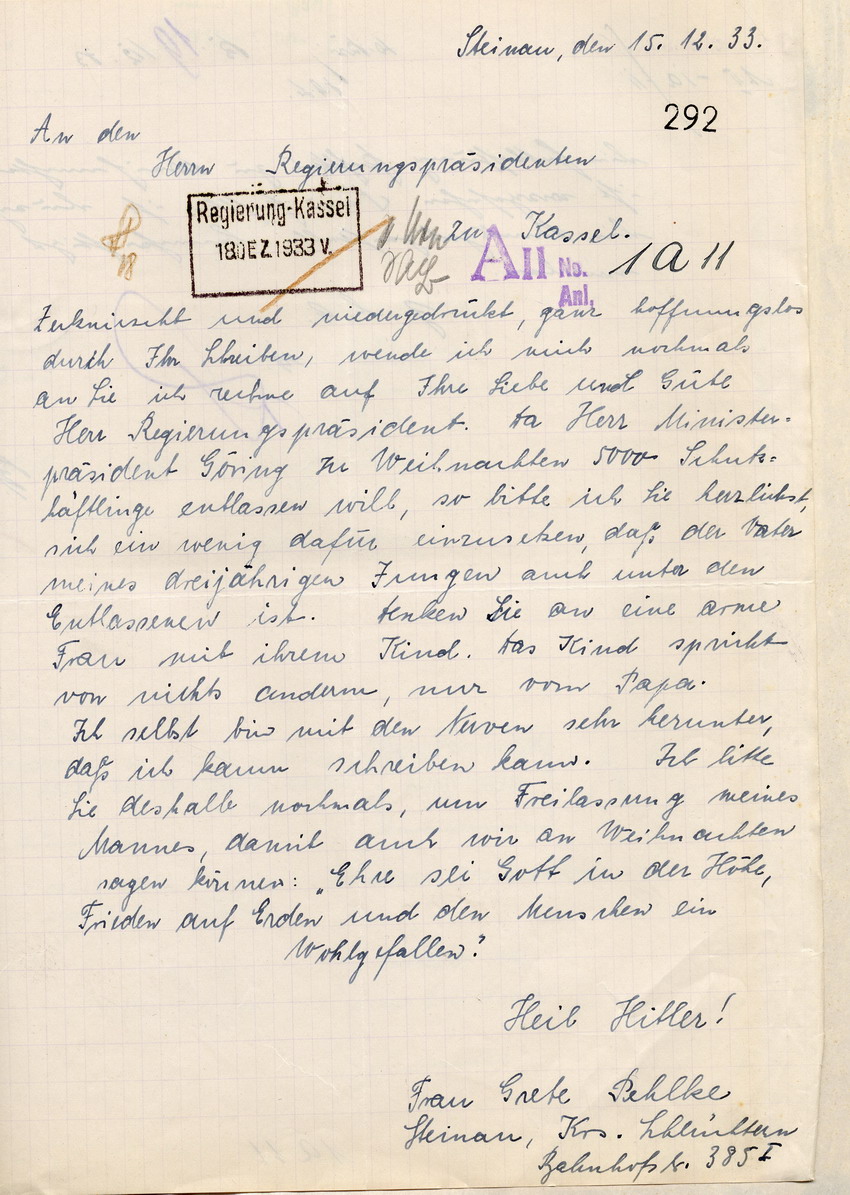 Steinau, den 15. 12. 33.
292
An den
Herrn Regierungspräsidenten
Regierung-Kassel
18.DEZ.1933 V.
zu Kassel.
18
A II No. 1 a 11
Anl.
Zerknirscht und niedergedrückt, ganz hoffnungslos
durch Ihr Schreiben, wende ich mich nochmals
an Sie ich rechne auf Ihre Liebe und Güte
Herr Regierungspräsident. Da Herr Minister=
präsident Göring zu Weihnachten 5000 Schutz=
häftlinge entlassen will, so bitte ich Sie herzlichst,
sich ein wenig dafür einzusetzen, daß der Vater
meines dreijährigen Jungen auch unter den
Entlassenen ist. Denken Sie an eine arme
Frau mit ihrem Kind. Das Kind spricht
von nichts anderm, nur vom Papa.
Ich selbst bin mit den Nerven sehr herunter,
daß ich kaum schreiben kann. Ich bitte
Sie deshalb nochmals, um Freilassung meines
Mannes, damit auch wir an Weihnachten
sagen können: „Ehre sei Gott in der Höhe,
Frieden auf Erden und den Menschen ein
Wohlgefallen."
Heil Hitler!
Frau Grete Pehlke
Steinau, Krs. Schlüchtern
Bahnhofstr. 385 I